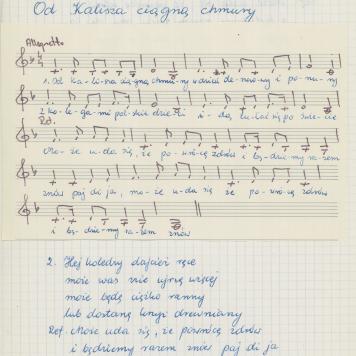 Od Kalisza ciągną chmury
Allegretto
1. Od Ka-lisza ciągną chmu-ry wdzień de-szczowy i po-nu-ry
z ko-le-ga-mi pol-skie dzie-ci i-dą, tu-łać się po świe-cie
Ref.
Mo-że u-da się, że po-wró-cę zdrów i bę-dzie-my ra-zem
znów paj di ja, mo-że u-da się że po-wró-cę zdrów
i bę-dzie-my ra-zem znów
2. Hej koledzy dajcież ręce
może was nie ujrzę więcej
może będę ciężko ranny
lub dostanę krzyż drewniany
Ref. Może uda się, że powrócę zdrów
i będziemy razem znów paj di ja